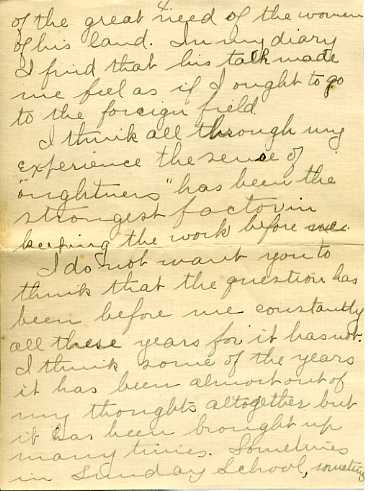 4.
of the great need of the women
of his land. In my diary
I find that his talk made
me feel as if I ought to go
to the foreign field.
I think all through my
experience the sense of
"oughtness" has been the
strongest factor in
keeping the work before me.
I do not want you to
think that the question has
been before me constantly
all these years for it has not.
I think some of the years
it has been almost out of
my thoughts altogether but
it has been brought up
many times. Sometimes
in Sunday School, something